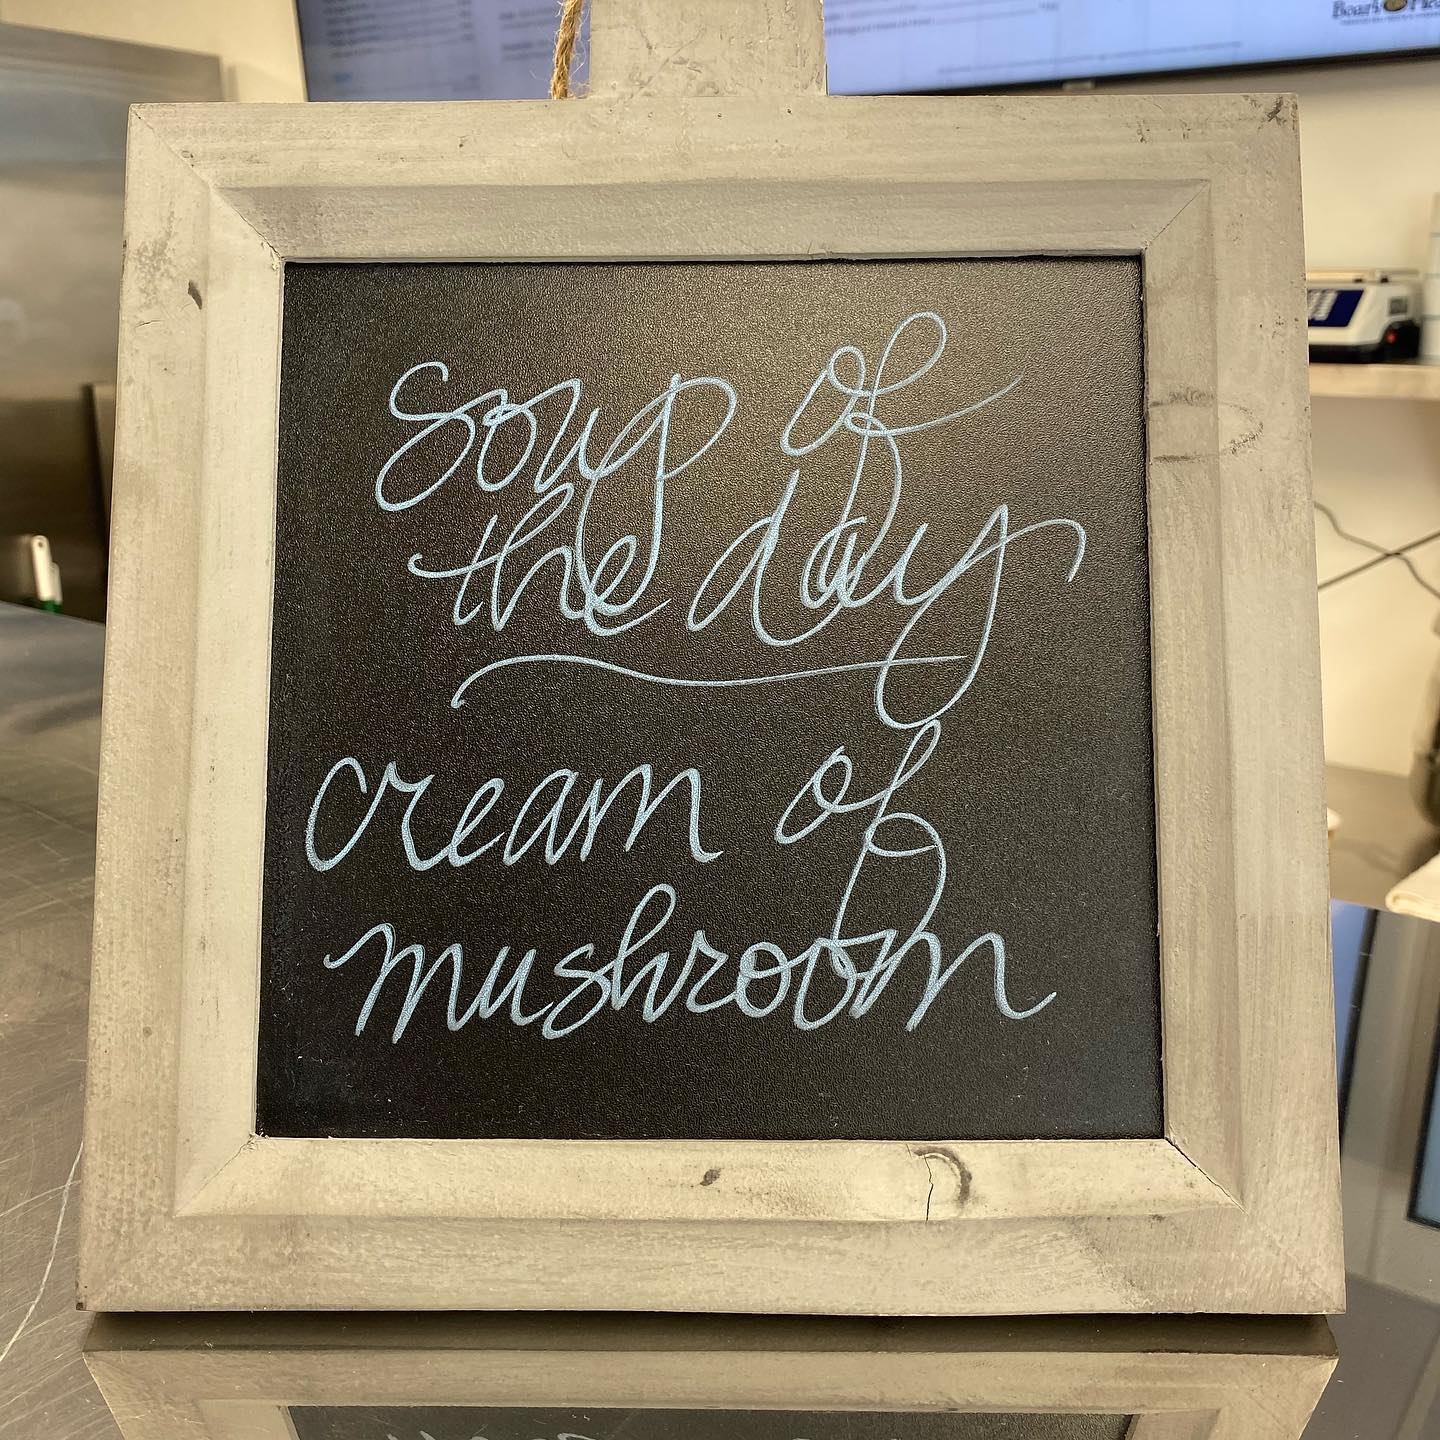 soup of
the day
cream of
mushroom